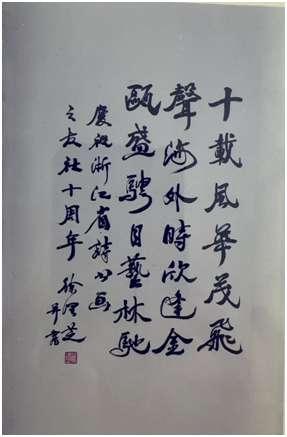 十載風華茂飛
聲海外時欣逢金
甌盛騁目藝林馳
慶祝浙江省詩書画
之友社十周年 徐
并書